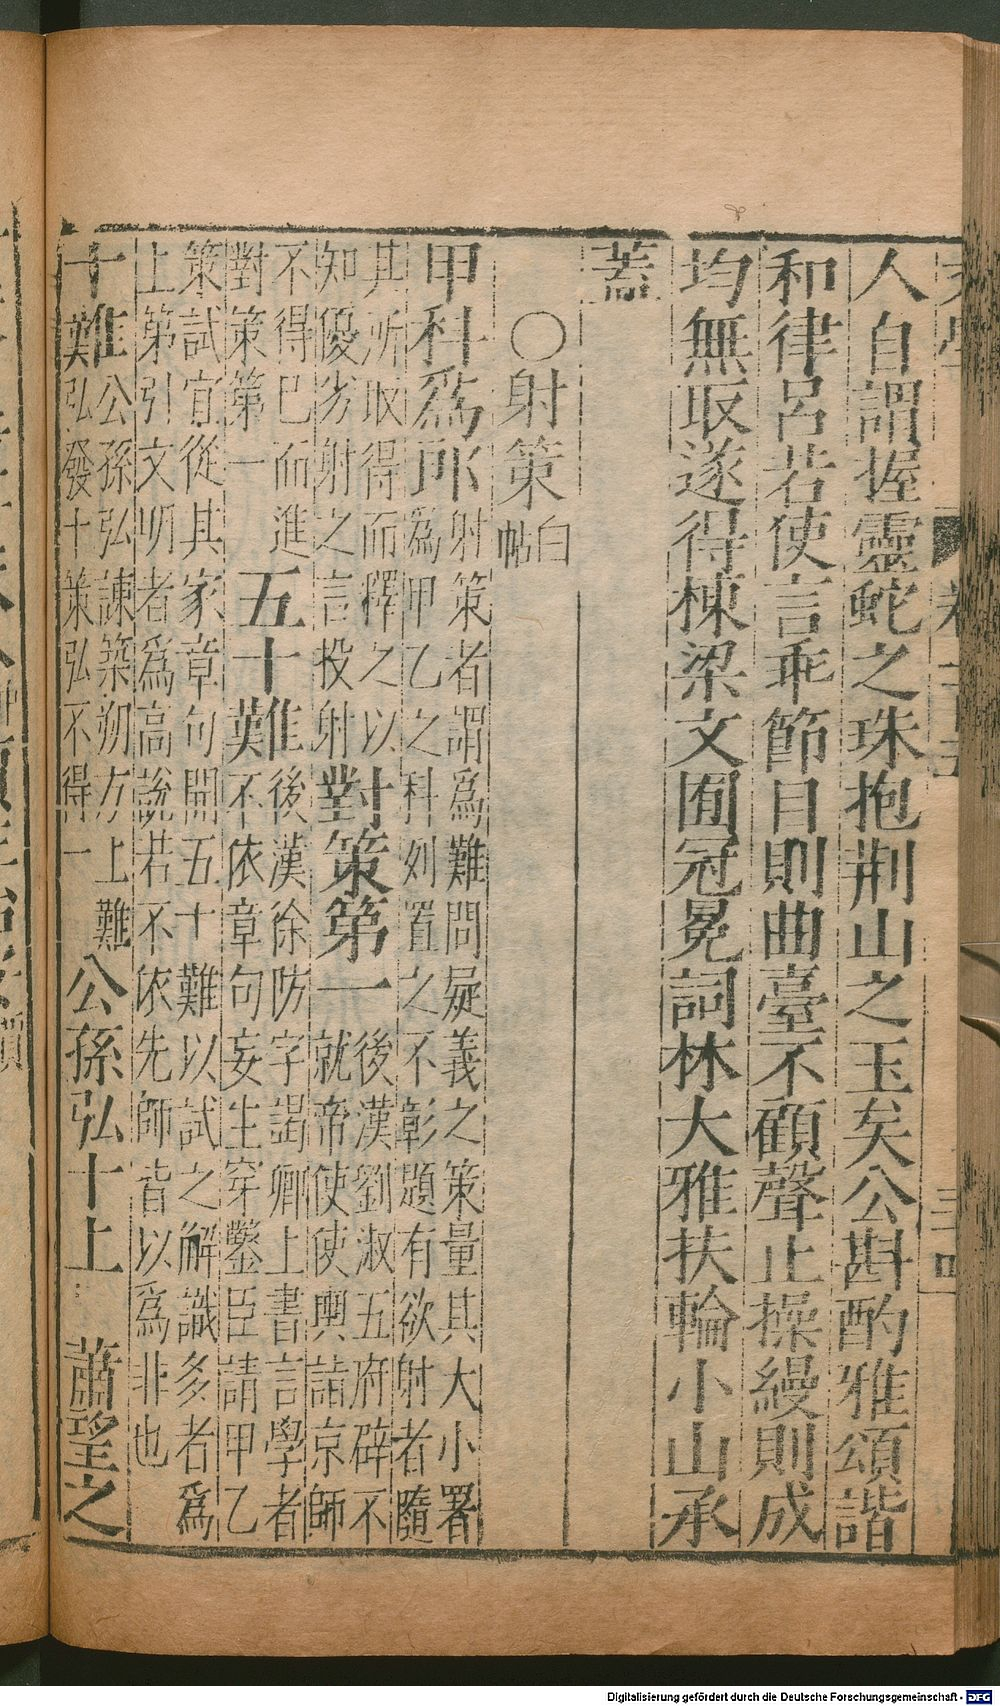 人自謂握靈蛇之珠抱荆山之玉矣公斟酌雅頌諧
和律呂若使言乖節目則曲臺不顧聲止操縵則成
均無取遂得棟梁文囿冠冕詞林大雅扶輪小山承
蓋
○射策白帖
甲科爲郎射策者謂爲難問疑義之策量其大小署爲甲乙之科列置之不彰題有欲射者隨
其所取得而釋之以知優劣射之言投射對策第一後漢劉淑五府辟不就帝使使輿詣京師
不得已而進對策第一五十難後漢徐防字謁卿上書言學者不依章句妄生穿鑿臣請甲乙
策試宜從其家章句開五十難以試之解識多者爲上第引文明者爲高說若不依先師皆以爲非也
十難公孫弘諫築朔方上難弘發十策弘不得一公孫弘十上蕭望之
Digitalisierung gefördert durch die Deutsche Forschungsgemeinschaft - DFG